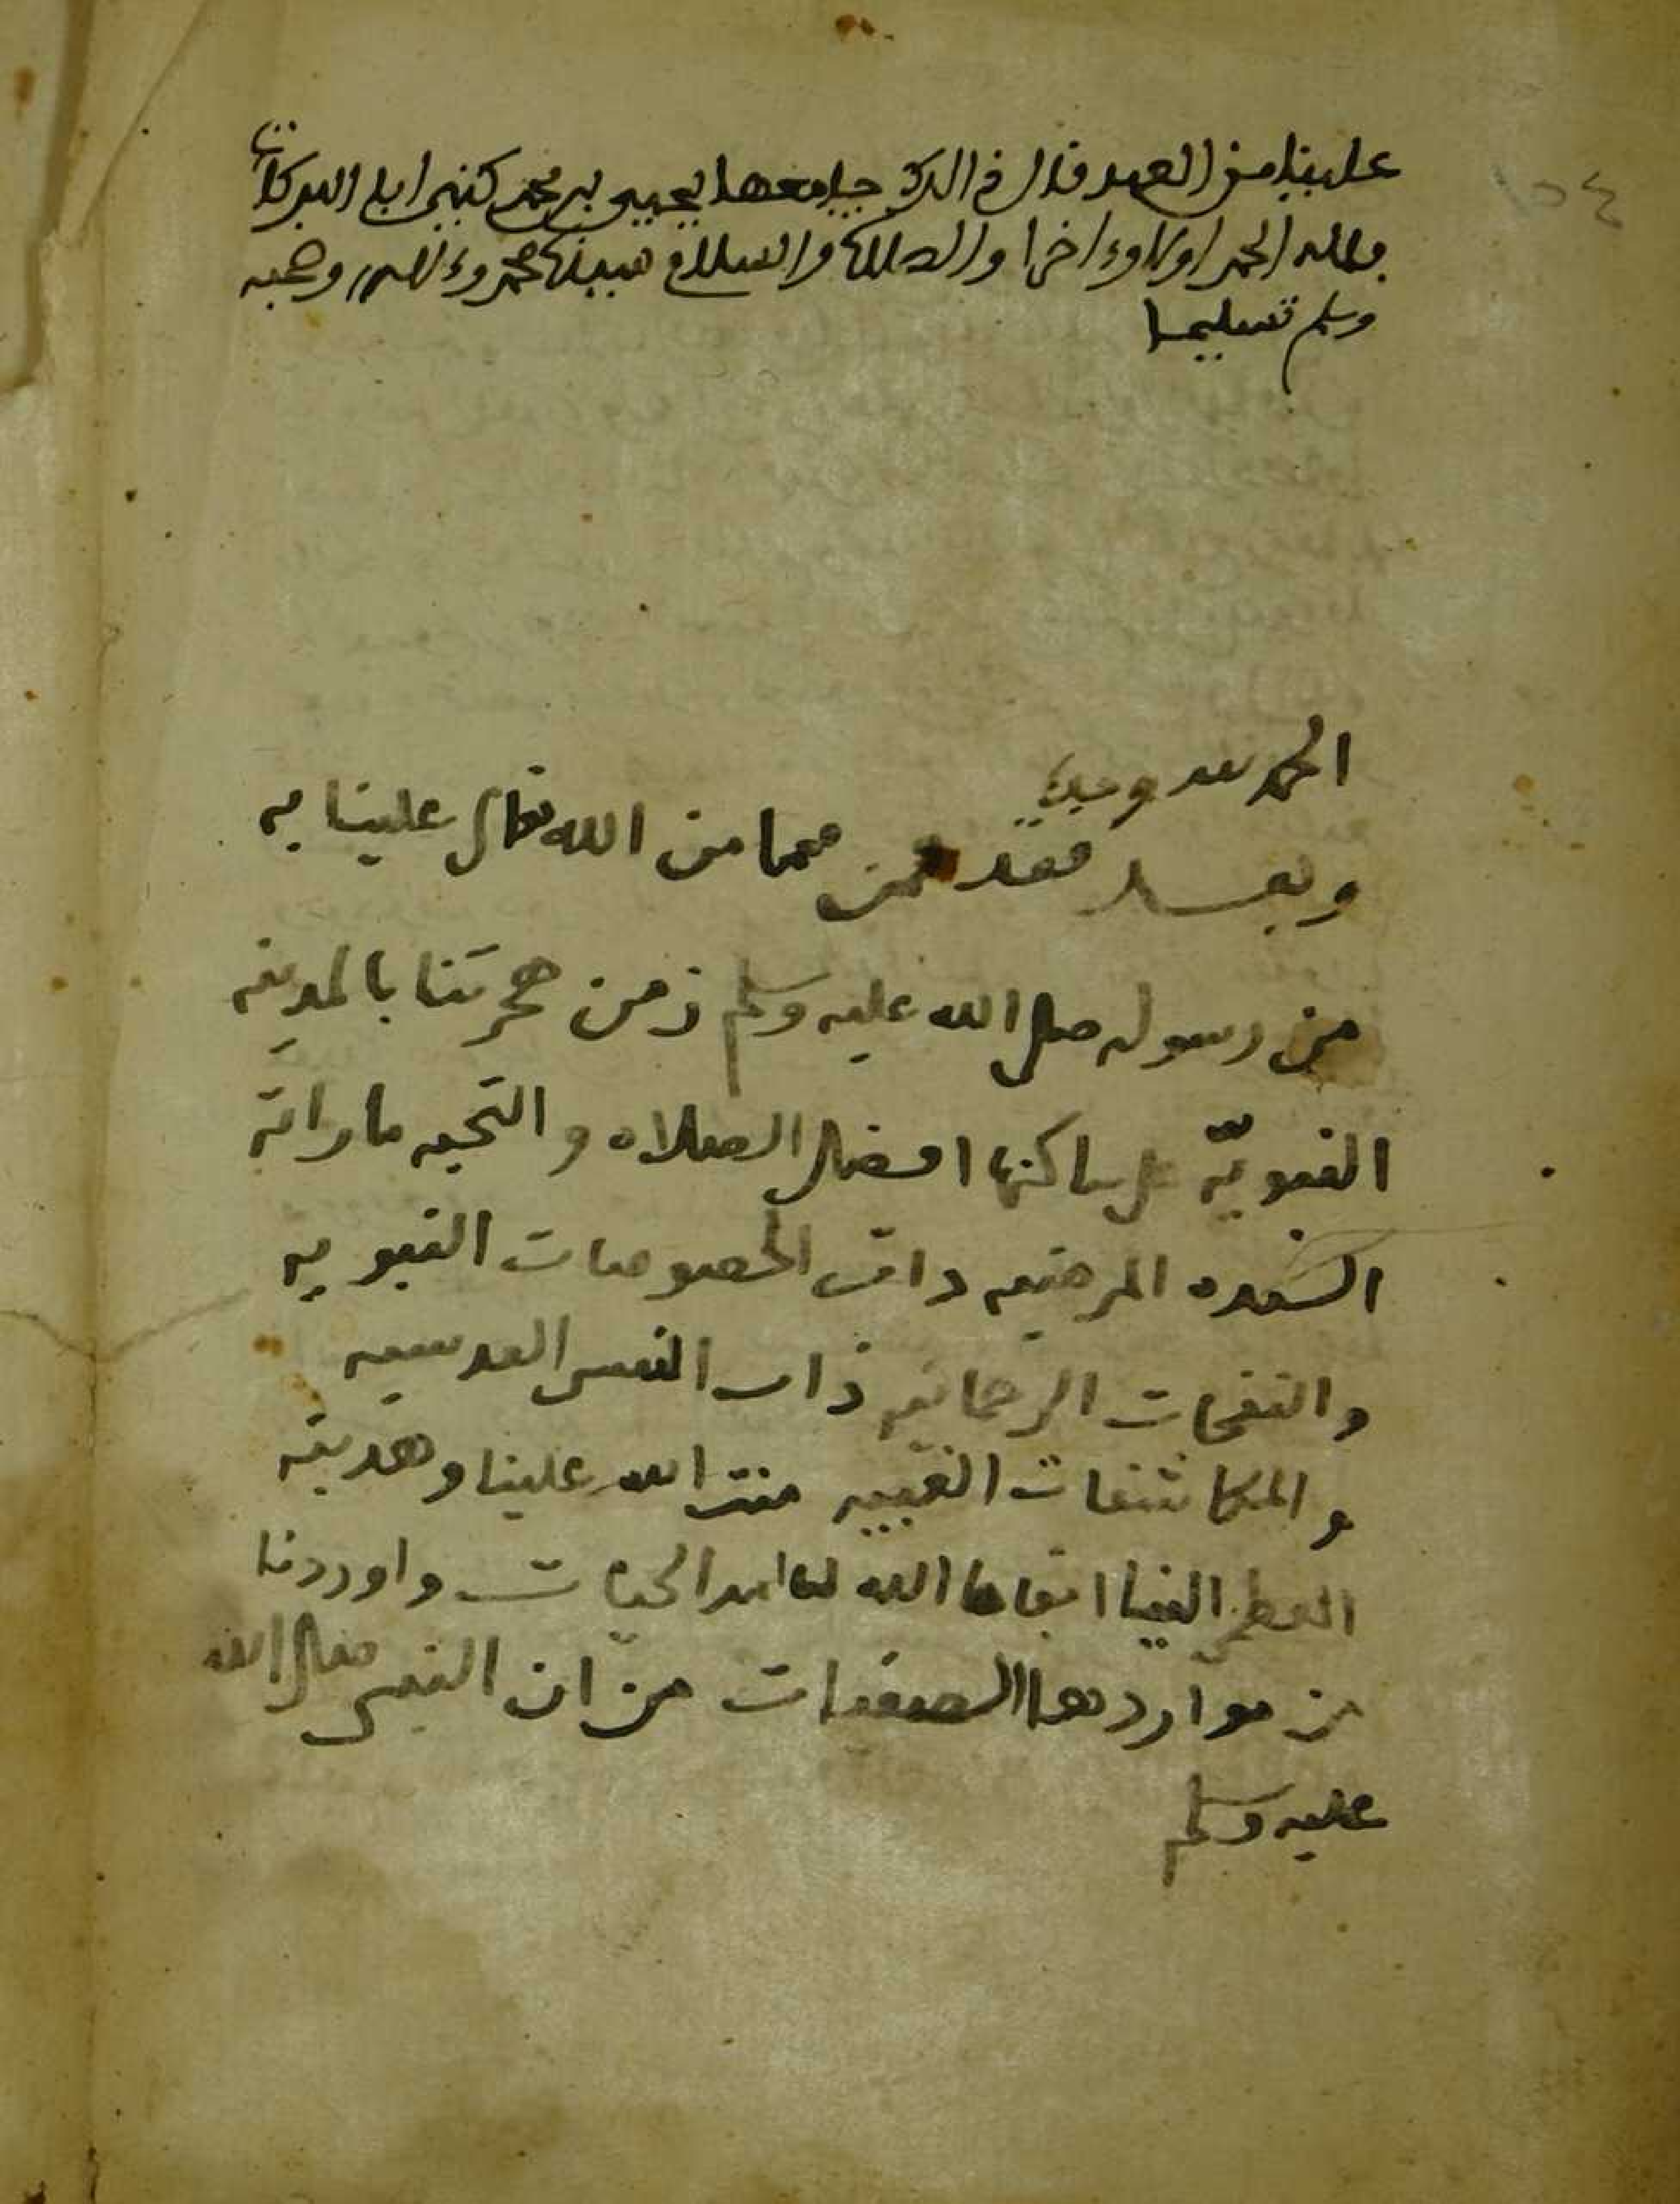 علينا من العهد قال في الدرة جامعها يحيى بن محمد كنيي ابا البركات
فلله الحمد اولا وءاخرا والصلاة والسلام سيدنا محمد وءاله وصحبه
وسلم تسليما
١٥٤
الحمد لله وحده
وبعد فقد من مما من الله تعالى علينا به
من رسوله صلى الله عليه وسلم زمن هجرتنا بالمدينه
النبويّه على ساكنها افضل الصلاه والتحيه ما راته
السيده المرضيه ذات الخصوصات النبويه
والنفحات الرحمانيه ذات النفس القدسيه
والمكاشفات الغيبيه منت الله علينا وهديته
العظمى الينا ابقاها الله لنا ابد الحيات واوردنا
من مواردها من ان النبي صلى الله
عليه وسلم